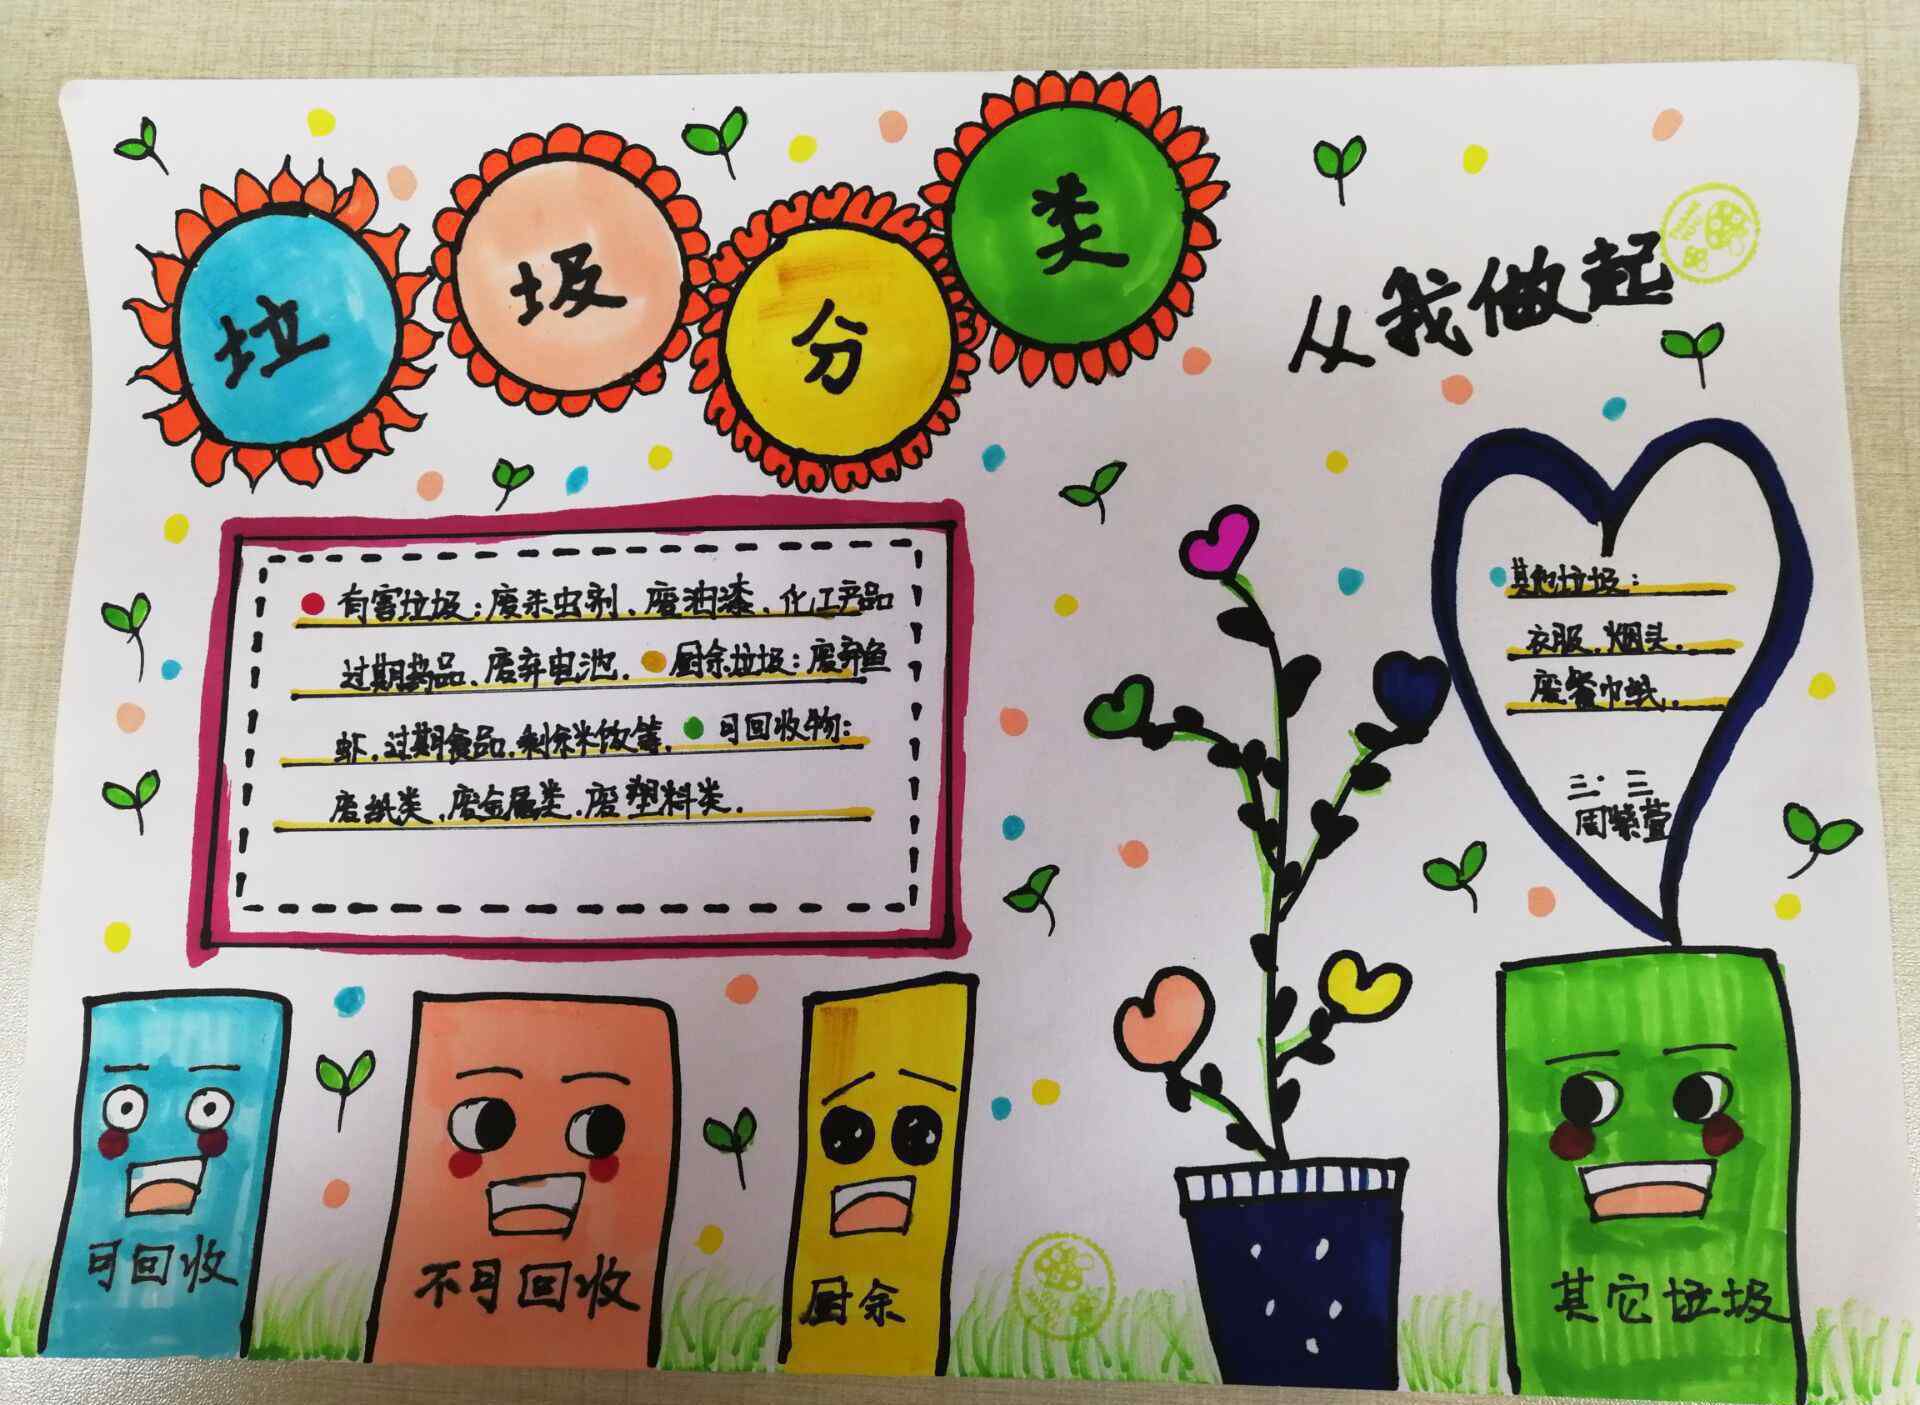 垃圾分类
从我做起
有害垃圾：废杀虫剂、废油漆、化工产品
过期药品、废弃电池。厨余垃圾：废弃鱼
虾、过期食品、剩余米饭等。可回收物：
废纸类、废金属类、废塑料类。
其他垃圾：
衣服、烟头、
废餐巾纸。
三·三
周紫萱
可回收
不可回收
厨余
其它垃圾